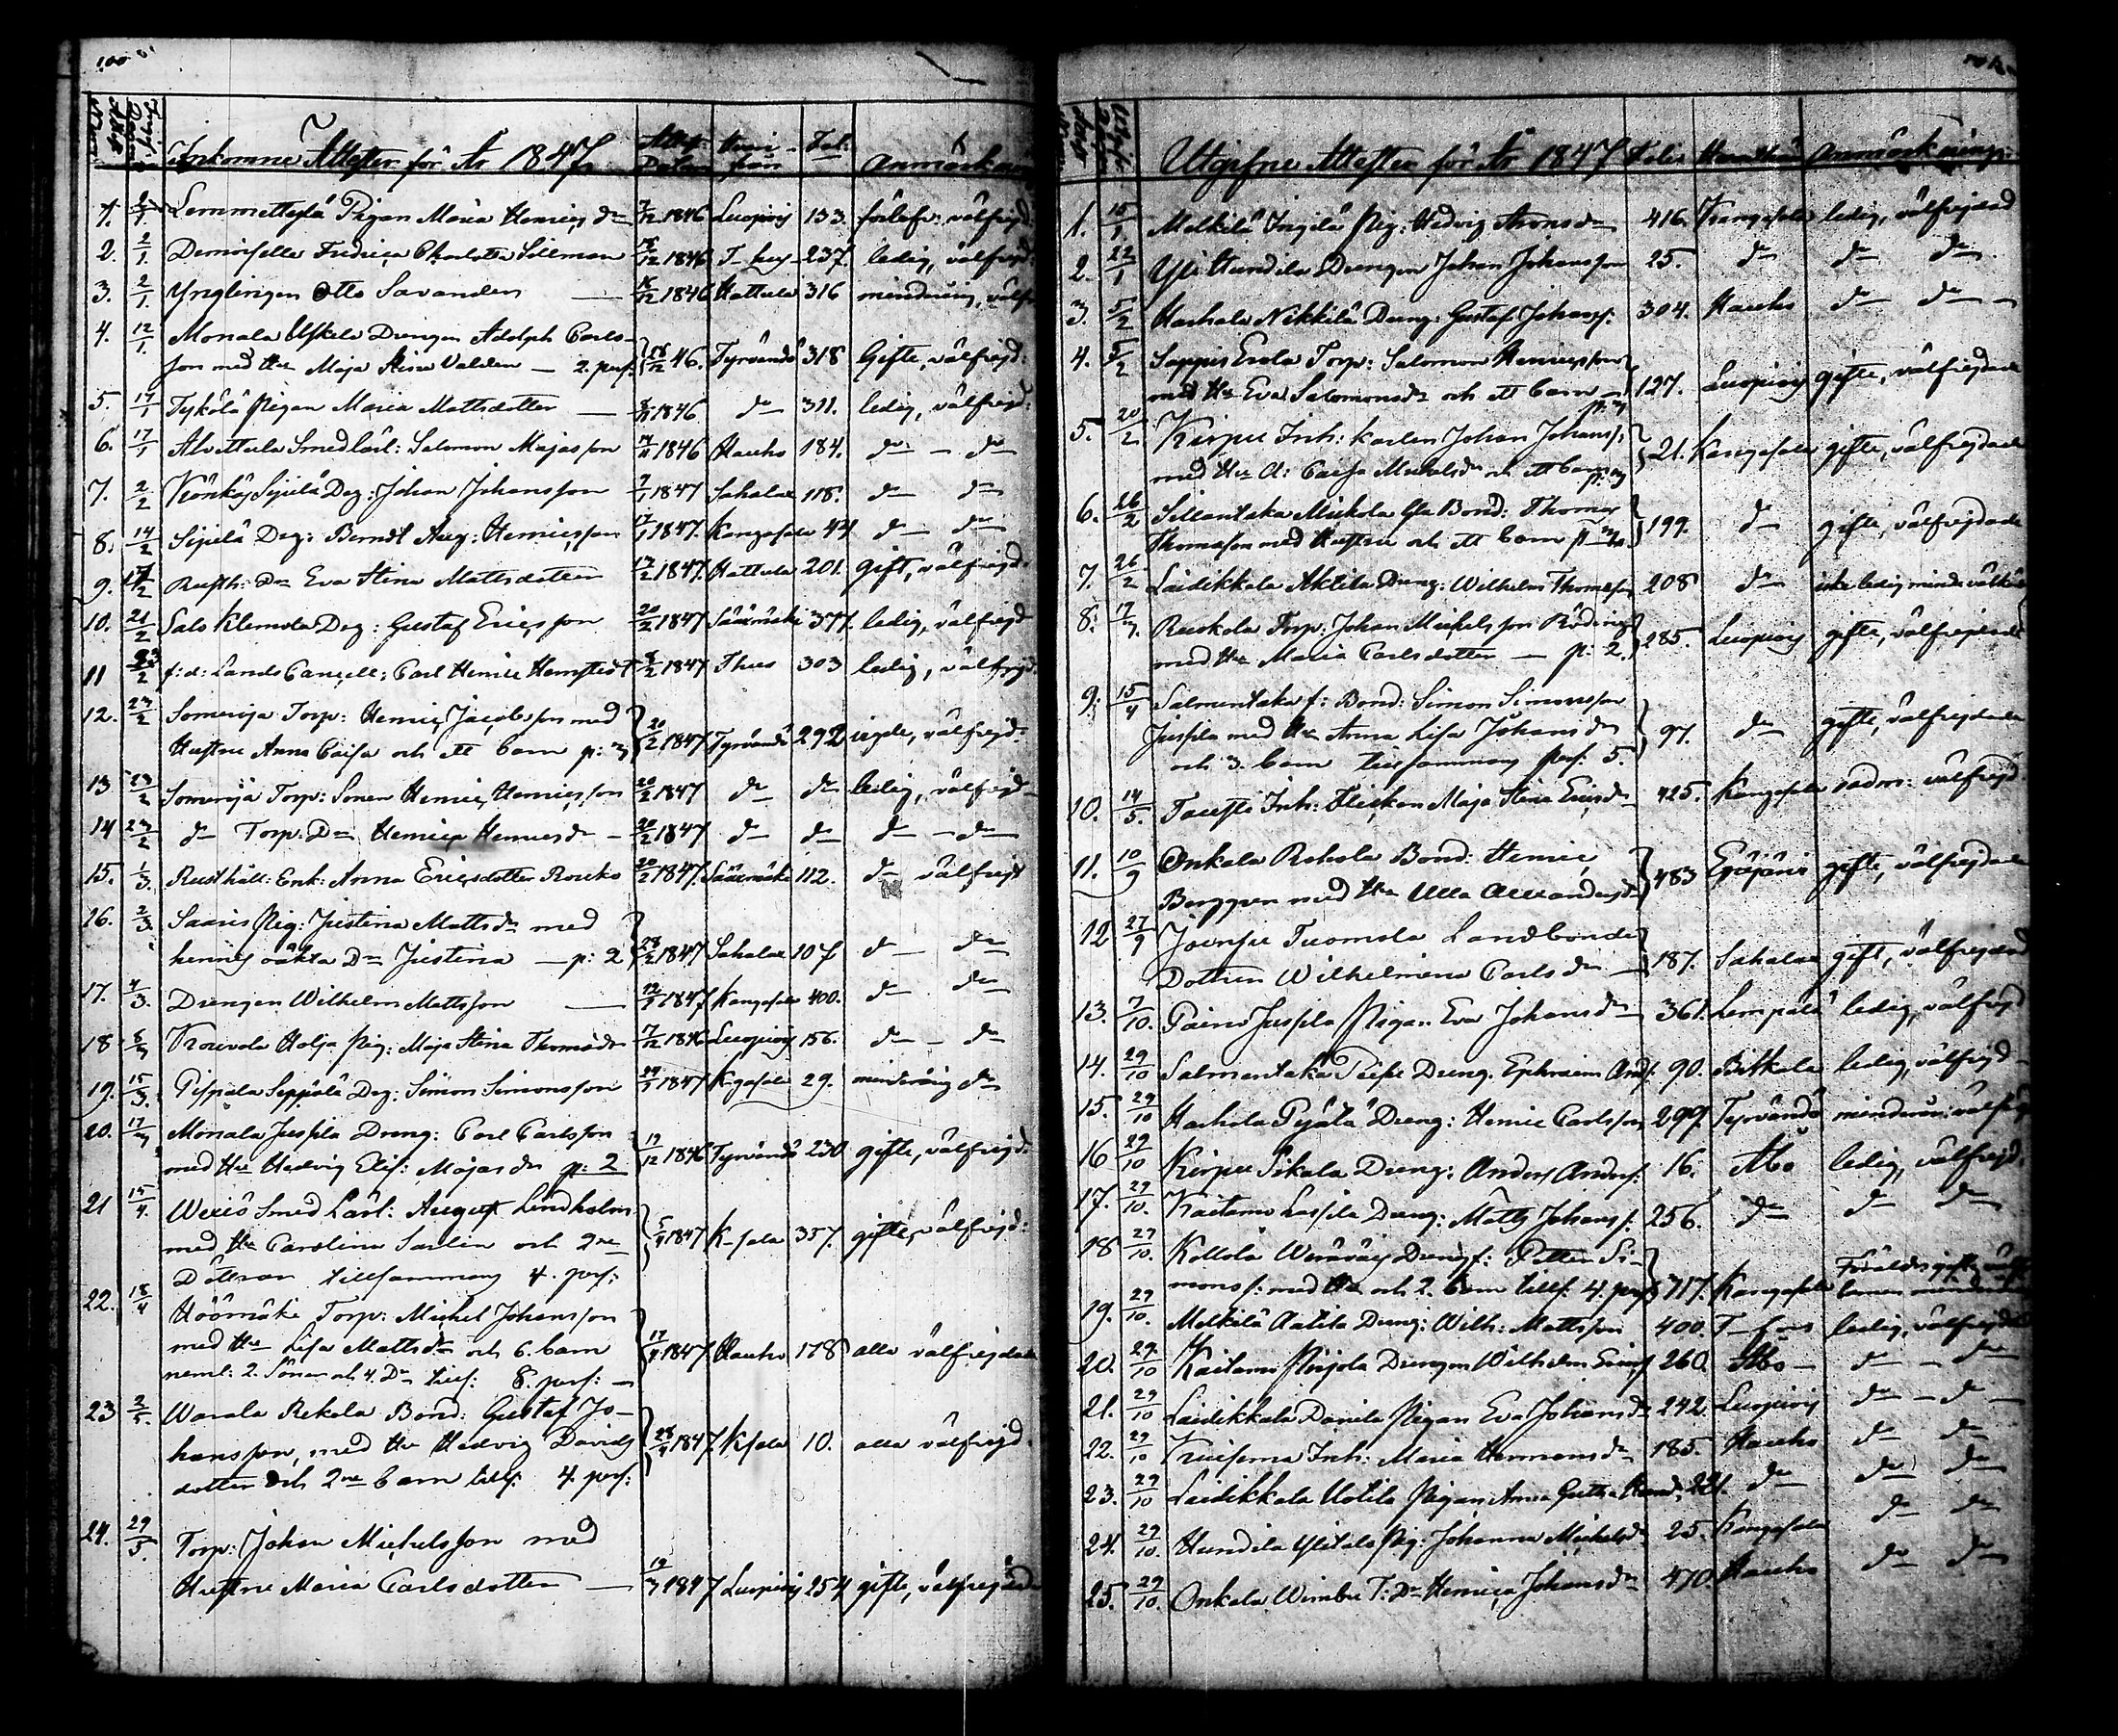 100
Inkomne Attester för År 1847 Attest: Daten hvari från Fol: Anmärkn
1. 2/1 Lemmettylä Pigan Maria Henricsdr 7/12 1846 Luopiois 133. förlofv: välfrejd
2. 2/1. Demoiselle Fredrica Charlotta Silleman 18/12 1846 T-hus 237. ledig, välfrejd:
3. 2/1. Ynglingen Otto Savander — 16/12 1846 Hattula 316 minderårig, välfr
4. 12/1. Monala Uskela Drengen Adolph Carls-
son med Hu Maja Stina Valden — 2. pers: 26/12 46. Tyrvändö 318 Gifte, välfrejd:
5. 17/1 Tykölä Pigan Maria Mattsdotter — 1846 do 311. ledig, välfrejd:
6. 17/1 Alvettula Smedlärl: Salomon Majasson 1846 Hauho 184. do - do
7. 2/2 Sipilä Drg: Johan Johansson 7/1 1847 Sahalax 118. do do
8. 14/2 Sipilä Drg: Berndt Aug: Henricsson 17/1 1847. Kangasala 44 do - do
9. 14/2 Rusth: Dr Eva Stina Mattsdotter 12/2 1847. Hattula 201. gift, välfrejd:
10. 21/2 Salo Klemola Drg: Gustaf Ericsson 20/2 1847 Sääxmäki 377. ledig, välfrejd
11 22/2 f: d: Lands Cancell: Carl Henric Hemstedt 1847 T hus 303 ledig, välfrejd.
12. 23/2 Someroja Torp: Henric Jacobsson med
Hustru Anna Caisa och ett barn p: 3 20/2 1847 Tyrvändö 292 välfrejd:
13 23/2 Someroja Torp: Sonen Henric Henricsson 20/2 1847 do do ledig, välfrejd
14 23/2 do Torp: Dr Henrica Henricsdr - 20/2 1847 do do do - do
15. 1/3. Rusthåll: Enk: Anna Ericsdotter Rouko 20/2 1847. Sääxmäki 112. do välfrejd
16. 2/3. Saaris Pig: Justina Mattsdr med
hennes oäkta Dr Justina — p: 2 28/2 1847. Sahalax 107 do — do
17. 4/3. Drengen Wilhelm Mattsson — 1847 Kangasala 400. do do
18 6/3 Kouvola Holja Pig: Maja Stina Thomasdr 17/12 1846 Luopiois 156. do - do
19. 15/3. Pispala Seppälä Drg: Simon Simonsson 1847 K-gasala 29. minderårig do
20. 17/3. Monala Jussila Dreng: Carl Carlsson
med Hu Hedvig Elis: Majasdr p: 2 19/12 1846 Tyrvändö 230 gifte, välfrejd:
21 15/4. Wexiö Smed Lärl: August Lindholm
med Hu Carolina Sarlin och 2ne
Döttrar tillsammans 4. pers: 1847 K-sala 357. gifte, välfrejd:
22. 18/4 Höömäki Torp: Michel Johansson
med Hu Lisa Mattsdr och 6. barn
neml: 2. Söner och 4. Dr tills: 8. pers: — 17/4 1847. Hauho 178 alla välfrejdade
23 2/5. Warala Rekola Bond: Gustaf Jo-
hansson, med Hu Hedvig Davids
dotter och 2ne barn tills. 4. pers: 28/4 1847. K-sala 10. alla välfrejd.
24. 29/5. Torp: Johan Michelsson med
Hustru Maria Carlsdotter — 19/3 1847 Luopiois 254 gifte, välfrejdade
Utgifne Attester för År 1847 Folio Hvarthän Anmärkningar:
1. 15/1 Melkilä Ingilä Pig: Hedvig Aronsdr 416. Kangasala ledig, välfrejdad
2. 22/1 Yli Hundila Drengen Johan Johansson 25. do do do
3. 5/2 Hachola Nikkilä Dreng: Gustaf Johanss: 304. Hauho do do
4. 5/2 Sappis Erola Torp: Salomon Henricsson
med Hu Eva Salomonsdr och ett barn — p: 3 127. Luopiois gifte, välfrejdade
5. 20/2 Kirpu Inh: karlen Johan Johanss:
med Hu A: Caisa Michelsdr och ett barn p: 3 21. Kangasala gifte, välfrejdade
6. 26/2 Sillantaka Mickola Gla Bond: Thomas
Thomasson med Hustru och ett barn p 3 199. do gifte, välfrejdade
7. 26/2 Laidikkala Aktila Dreng: Wilhelm Thomasson 208 do icke ledig mindre välkänd
8. 17/3. Ruokola Torp: Johan Michelsson Röding
med Hu Maria Carlsdotter — p: 2. 285. Luopiois gifte, välfrejdade
9. 15/4 Salmentaka f: Bond: Simon Simonsson
Jussila med Hu Anna Lisa Johansdr
och 3. barn tillsammans pers: 5. 97. do gifte, välfrejdade
10. 14/5. Inh: Flickan Maja Stina Ericsdr 425. Kangasala välfrejd
11. 10/9 Onkala Rohola Bond: Henric
Berggren med Hu Ulla Alexandersdr 483 gifte, välfrejdade
12 27/9 Jouksu Tuomola Landbonde
Dottren Wilhelmina Carlsdr — 187. Sahalax gift, välfrejdad
13. 7/10. Paino Jussila Pigan Eva Johansdr 361. Lempälä ledig, välfrejd
14. 29/10 Salmentaka Dreng. Ephraim Ands: 90. Birkala ledig, välfrejd
15. 29/10 Hachola Pijälä Dreng: Henric Carlsson 299. Tyrvändö minderår: välfrejd
16 29/10 Kirpu Sikala Dreng: Anders Anders: 16. Åbo ledig, välfrejd:
17. 29/10. Kaitamo Lassila Dreng: Matts Johanss: 256. do do do
18 29/10. Kollola Wäräväis Dreng f: Petter Si-
monss: med Hu och 2. barn tills: 4. pers 717. Kangasala Föräldr: gifte, välfr barnen minderår
19. 29/10. Melkilä Aatila Dreng: Wilh: Mattsson 400. T-fors ledig, välfrejdad
20. 29/10 Kaitamo Pirjola Drengen Wilhelm Erics: 260. Åbo — do - do
21. 29/10 Laidikkala Danila Pigan Eva Johansdr 242 Luopiois do - do
22. 29/10 Inh: Maria Hermansdr 185. Hauho do do
23. 29/10 Laidikkala Uotila Pigan Anna Gretha 221. do do do
24. 29/10. Hundila Ylitalo Pig: Johanna Michelsdr 25. Kangasala do do
25. 29/10. Onkala Wimbu T: Dr Henrica Johansdr 470 Hauho do do